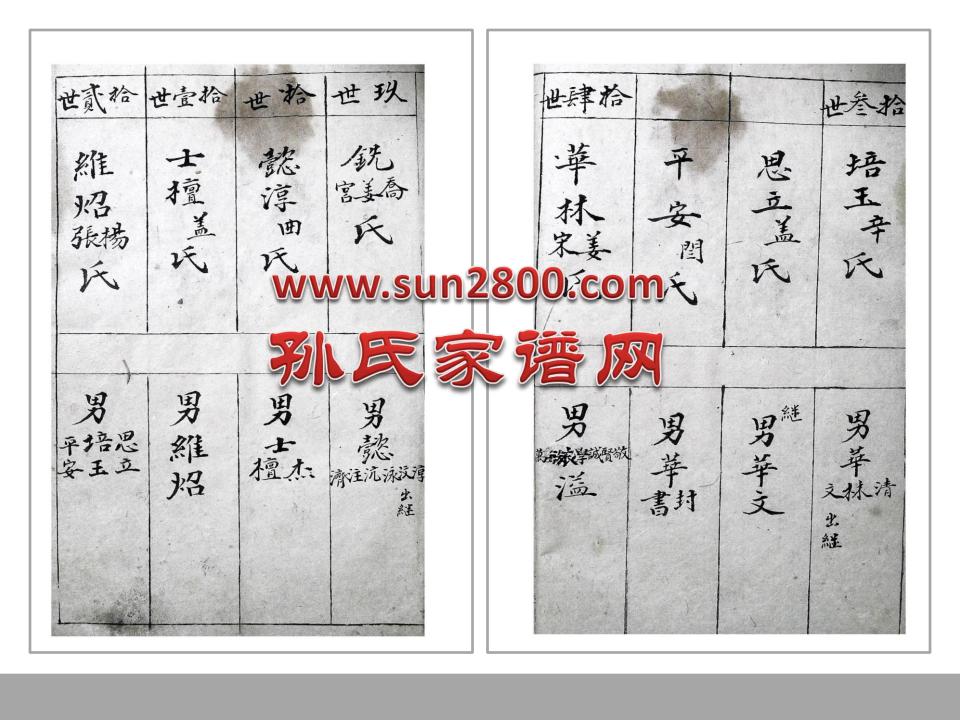 玖世
銑
喬姜宮
氏
男
懿
淳汶泳沆注濟
出継
拾世
懿淳
曲
氏
男
士
杰
檀
拾壹世
士檀
盖
氏
男維炤
拾貳世
維炤
楊張
氏
男
思立
培玉
平安
拾叁世
培玉
辛
氏
男華
清
林
文
出継
思立
盖
氏
継
男華文
平安
閆
氏
男華
封
書
拾肆世
華林
姜宋
氏
男
敬賢誠學
溢
www.sun2800.com
孙氏家谱网